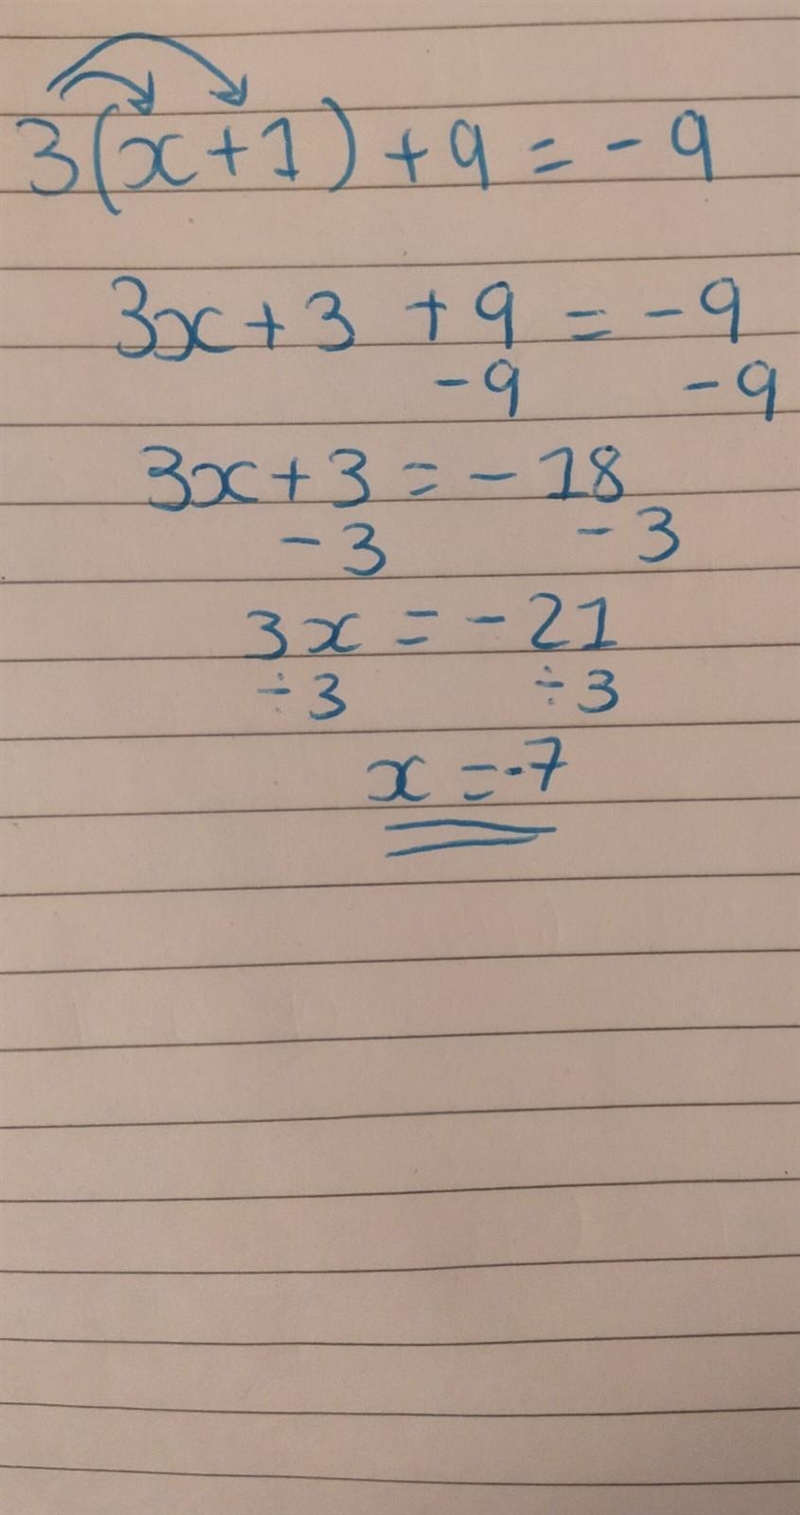 3(x+1)+9=-9
3x+3 +9=-9
-9 -9
3x+3=-18
-3 -3
3x=-21
÷3 ÷3
x=-7